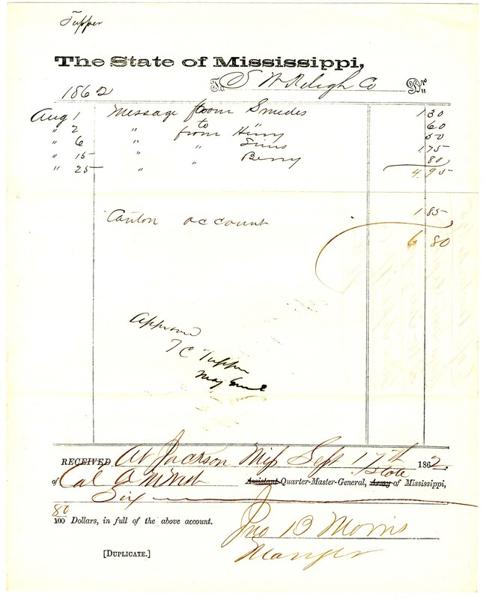 Tupper
The State of Mississippi,
1862 To S W Telegh Co Dr.
Aug 1 Message from Smedes 1 30
" 2 " to " 60
" 6 " from Henry 50
" 15 " " Sims 1 75
" 25 " " Berry 80
4.95
Canton account 1 85
6 80
Approved
T C Tupper
Maj Genl
RECEIVED At Jackson Miss Sept 17th 1862
of Col A M West State Assistant Quarter-Master-General, Army of Mississippi,
Six
80
100 Dollars, in full of the above account.
Jno B Morris
Manager
[DUPLICATE.]